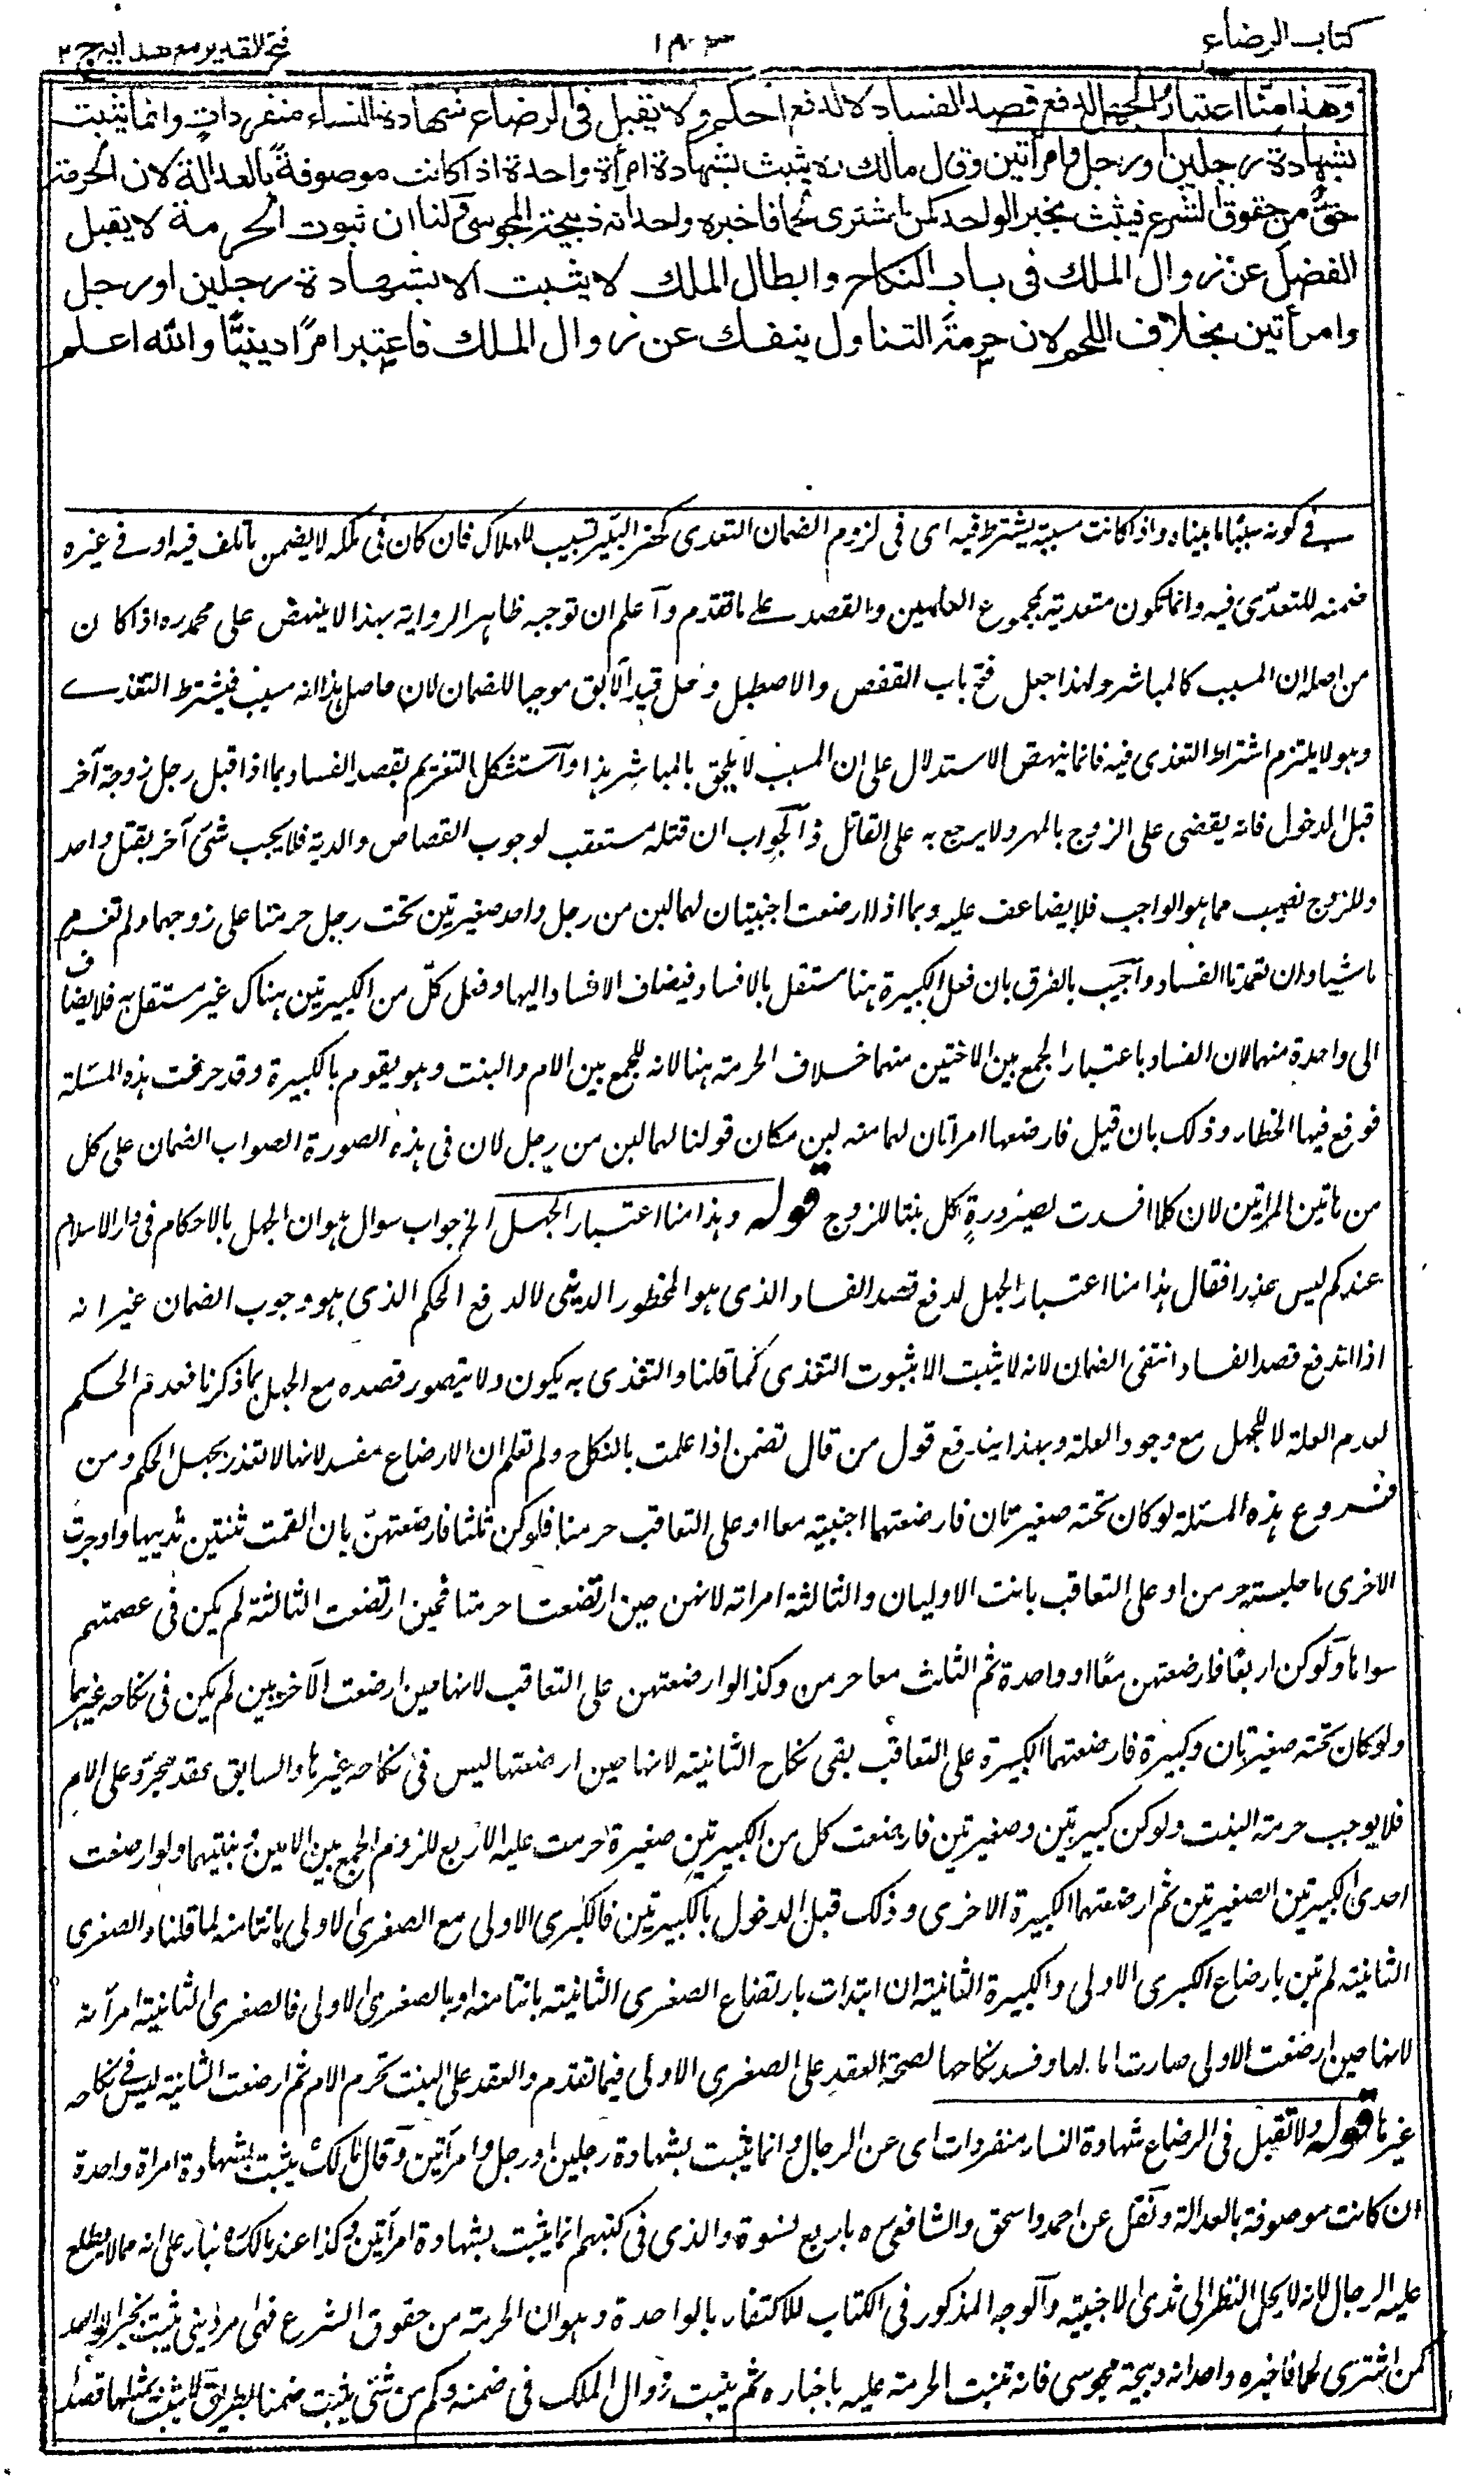 كتاب الرضاع
١٨٣
فتح القدير مع هدايه ج ٢
وهذا منا اعتبار الجهل لدفع قصد الفساد لا لدفع الحكم ولا يقبل فى الرضاع شهادة النساء منفردات وانما يثبت
بشهادة رجلين او رجل وامرأتين وقال مالك ره يثبت بشهادة امرأة واحدة اذا كانت موصوفة بالعدالة لان الحرمة
حق من حقوق الشرع فيثبت بخبر الواحد كمن اشترى لحما فاخبره واحد انه ذبيحة المجوسى ولنا ان ثبوت الحرمة لا يقبل
الفصل عن زوال الملك فى باب النكاح وابطال الملك لا يثبت الا بشهادة رجلين او رجل
وامرأتين بخلاف اللحم لان حرمة التناول ينفك عن زوال الملك فاعتبر امرًا دينيًّا والله اعلم
فى كونه سببًا ما بيناه واذا كانت سببية يشترط فيه اى فى لزوم الضمان التعدى كحفر البئر تسبيب للهلاك فان كان فى ملكه لا يضمن ما تلف فيه او فى غيره
ضمنه للتعدى فيه وانما تكون متعدية بمجموع العلمين والقصد على ما تقدم واعلم ان توجيه ظاهر الرواية بهذا لا ينهض على محمد ره اذا كان
من اصله ان المسبب كالمباشر ولهذا جعل فتح باب القفص والاصطبل وحل قيد الآبق موجبا للضمان لان حاصل هذا انه مسبب فيشترط التعدى
وهو لا يلتزم اشتراط التعدى فيه فانما ينهض الاستدلال على ان المسبب لا يلحق بالمباشر هذا واستشكل التغريم بقصد الفساد بما اذا قتل رجل زوجة آخر
قبل الدخول فانه يقضى على الزوج بالمهر ولا يرجع به على القاتل والجواب ان قتله مستعقب لوجوب القصاص والدية فلا يجب شئ آخر بقتل واحد
وللزوج نصيب مما هو الواجب فلا يضاعف عليه وبما اذا ارضعت اجنبيتان لهما لبن من رجل واحد صغيرتين تحت رجل حرمتا على زوجهما ولم تغرم
ما شيئا وان تعمدتا الفساد واجيب بالفرق بان فعل الكبيرة هنا مستقل بالافساد فيضاف الافساد اليها وفعل كل من الكبيرتين هناك غير مستقل به فلا يضاف
الى واحدة منهما لان الفساد باعتبار الجمع بين الاختين منهما خلاف الحرمة هنا لانه للجمع بين الام والبنت وهو يقوم بالكبيرة وقد حرفت هذه المسئلة
فوقع فيها الخطاء وذلك بان قيل فارضعها امرأتان لهما منه لبن مكان قولنا لهما لبن من رجل لان فى هذه الصورة الصواب الضمان على كل
من هاتين المراتين لان كلا افسدت لصيرورة كل بنتا للزوج قوله وهذا منا اعتبار الجهل الخ جواب سوال هو ان الجهل بالاحكام فى دار الاسلام
عندكم ليس عذرا فقال هذا منا اعتبار الجهل لدفع قصد الفساد الذى هو المحظور الدينى لا لدفع الحكم الذى هو وجوب الضمان غير انه
اذا اندفع قصد الفساد انتفى الضمان لانه لا يثبت الا بثبوت التعدى كما قلنا والتعدى به يكون ولا يتصور قصده مع الجهل بما ذكرنا فعدم الحكم
لعدم العلة لا للجهل مع وجود العلة وبهذا يندفع قول من قال تضمن اذا علمت بالنكاح ولم تعلم ان الارضاع مفسد لانها لا تعذر بجهل الحكم ومن
فروع هذه المسئلة لو كان تحته صغيرتان فارضعتهما اجنبية معا او على التعاقب حرمتا فلو كن ثلثا فارضعتهن بان القمت ثنتين ثدييها واوجرت
الاخرى ما حلبته حرمن او على التعاقب بانت الاوليان والثالثة امراته لانهن حين ارتضعتا حرمتا فحين ارتضعت الثالثة لم يكن فى عصمتهم
سواها ولو كن اربعًا فارضعتهن معًا او واحدة ثم الثلث معا حرمن وكذا لو ارضعتهن على التعاقب لانها حين ارضعت الآخرين لم يكن فى نكاحه غيرهما
ولو كان تحته صغيرتان وكبيرة فارضعتهما الكبيرة على التعاقب بقى نكاح الثانية لانها حين ارضعتها ليس فى نكاحه غيرها والسابق عقد مجرد على الام
فلا يوجب حرمة البنت ولو كن كبيرتين وصغيرتين فارضعت كل من الكبيرتين صغيرة حرمت عليه الاربع للزوم الجمع بين الامين وبنتيهما ولو ارضعت
احدى الكبيرتين الصغيرتين ثم ارضعتهما الكبيرة الاخرى وذلك قبل الدخول بالكبيرتين فالكبرى الاولى مع الصغرى الاولى بانتا منه لما قلنا والصغرى
الثانية لم تبن بارضاع الكبرى الاولى والكبيرة الثانية ان ابتدات بارتضاع الصغرى الثانية بانتا منه او بالصغرى الاولى فالصغرى الثانية امرأته
لانها حين ارضعت الاولى صارت اما لها وفسد نكاحها لصحة العقد على الصغرى الاولى فيما تقدم والعقد على البنت تحرم الام ثم ارضعت الثانية ليس فى نكاحه
غيرها قوله ولا تقبل فى الرضاع شهادة النساء منفردات اى عن الرجال وانما يثبت بشهادة رجلين او رجل وامرأتين وقال مالك يثبت بشهادة امراة واحدة
ان كانت موصوفة بالعدالة ونقل عن احمد واسحق والشافعى ره باربع نسوة والذى فى كتبهم انما يثبت بشهادة امرأتين وكذا عند مالك ره بناء على انه مما لا يطلع
عليه الرجال لانه لا يحل النظر الى ثدى الاجنبية والوجه المذكور فى الكتاب للاكتفاء بالواحدة وهو ان الحرمة من حقوق الشرع فهى امر دينى يثبت بخبر الواحد
كمن اشترى لحما فاخبره واحد انه ذبيحة مجوسى فانه تثبت الحرمة عليه باخباره ثم يثبت زوال الملك فى ضمنه وكم من شئ يثبت ضمنا بطريق لا يثبت بمثلها قصدا